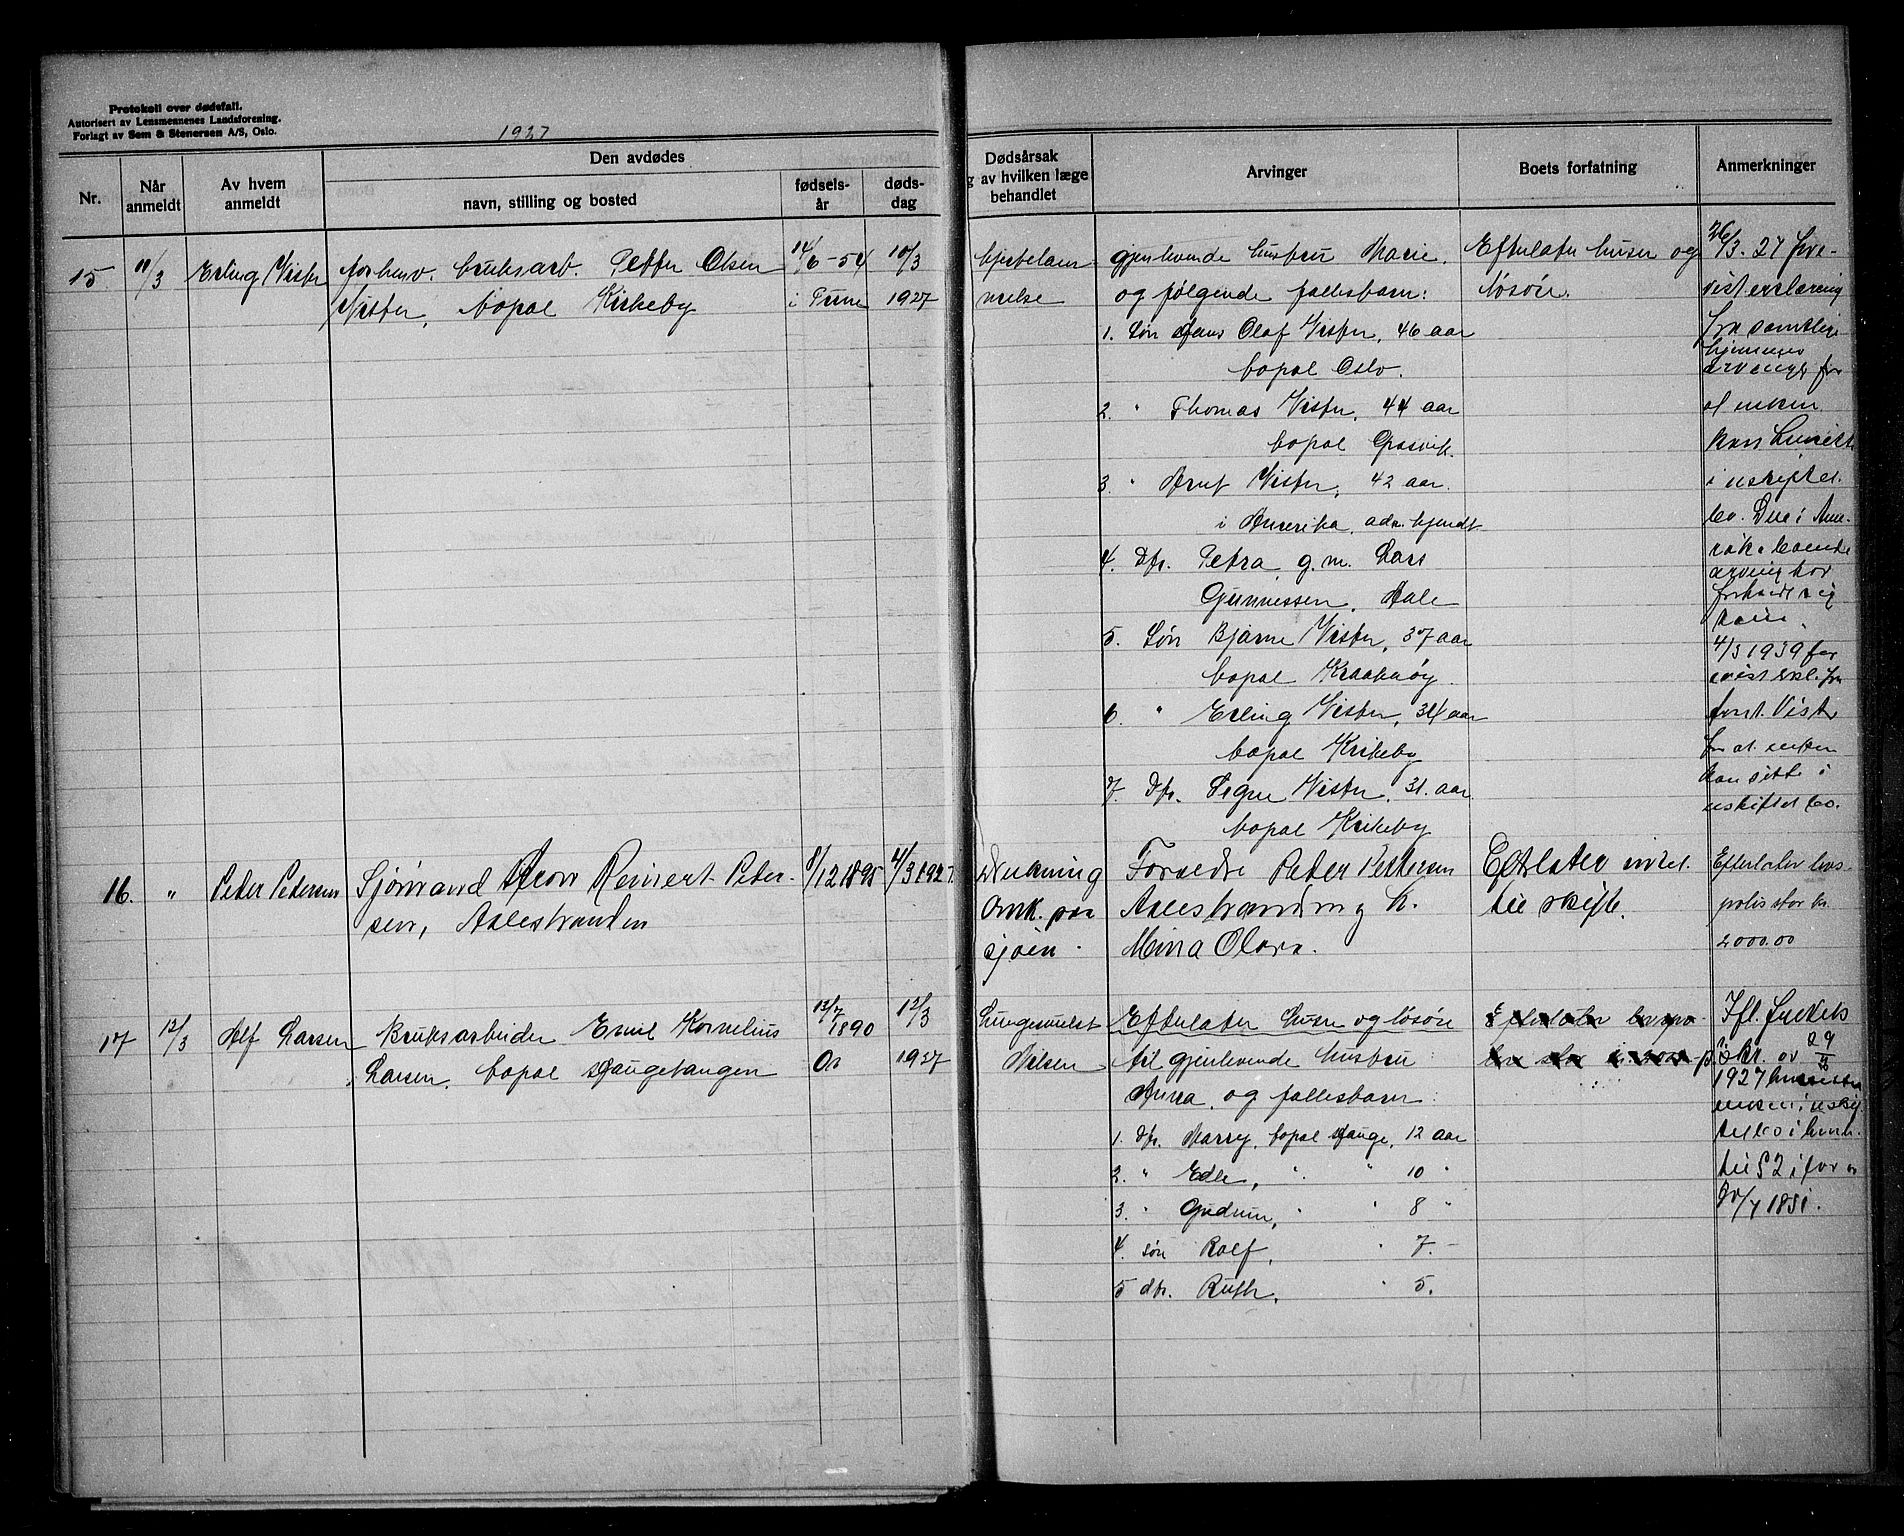 Protokoll over dødsfall.
Autorisert av Lensmennenes Landsforening.
Forlagt av Sem & Stenersen A/S, Oslo.
1927
Nr.
Når anmeldt
Av hvem anmeldt
Den avdødes
navn, stilling og bosted
fødsels-år
døds-dag
Dødsårsak
av hvilken læge
behandlet
Arvinger
Boets forfatning
Anmerkninger
15 11/3 Erling Vister forhenv. bruksarb. Petter Olsen 14/6-54 10/3
Vister, bopæl Kirkeby i Tune 1927
hjertelam
melse
gjenlevende hustru Marie,
og følgende fællesbarn:
1. Søn Hans Olaf Vister, 46 aar
bopæl Oslo.
2. " Thomas Vister, 44 aar
bopæl Gresvik.
3. " Arnt Vister, 42 aar.
i Amerika, adr. kjendt
4. Dtr. Petra g.m. Lars
Gunnessen, Aale
5. Søn Bjarne Vister, 37 aar
bopæl Kraakerøy.
6. " Erling Vister, 34 aar
bopæl Kirkeby
7. Dtr. Signe Vister, 31. aar
bopæl Kirkeby
Efterlater huser og
løsøre.
26/3. 27 fore-
vist erklæring
fra samtlige
hjemmev
arvinger for
at enken
kan
i uskiftet
bo. Den i Ame-
rika boende
arving har
4/3 1939 for
evist erkl. fra
Vister
for at enken
kan sitte i
uskiftet bo.
16. " Peter Petersen Sjömand Reinert Peter- 8/12 1895 4/3 1927
sen, Aalestranden
Drukning
Omk. paa
sjøen.
Forældre Peder Pettersen
Aalestranden og h.
Mina Olava.
Efterlater intet
til skifte.
Efterlater livs-
polis stor kr.
2000.00
17 12/3 Alf Larsen Bruksarbeider Emil Kornelius 13/7 1890 12/3
Larsen, bopæl Haugetangen Os 1927
Lungesvulst
Nilsen
Efterlater huse og løsøre
til gjenlevende hustru
Anna, og fællesbarn:
1. Dtr. Marry, bopæl Hauge, 12 aar
2. " Edle, " " 10 "
3. " Gudrun, " " 8 "
4. søn Rolf, " 7. –
5 dtr. Ruth, " 5.
Ifl.
kr. av 29
1927
enken i uskif
tet bo i henh.
til § 2 i lov av
30/7 1851.